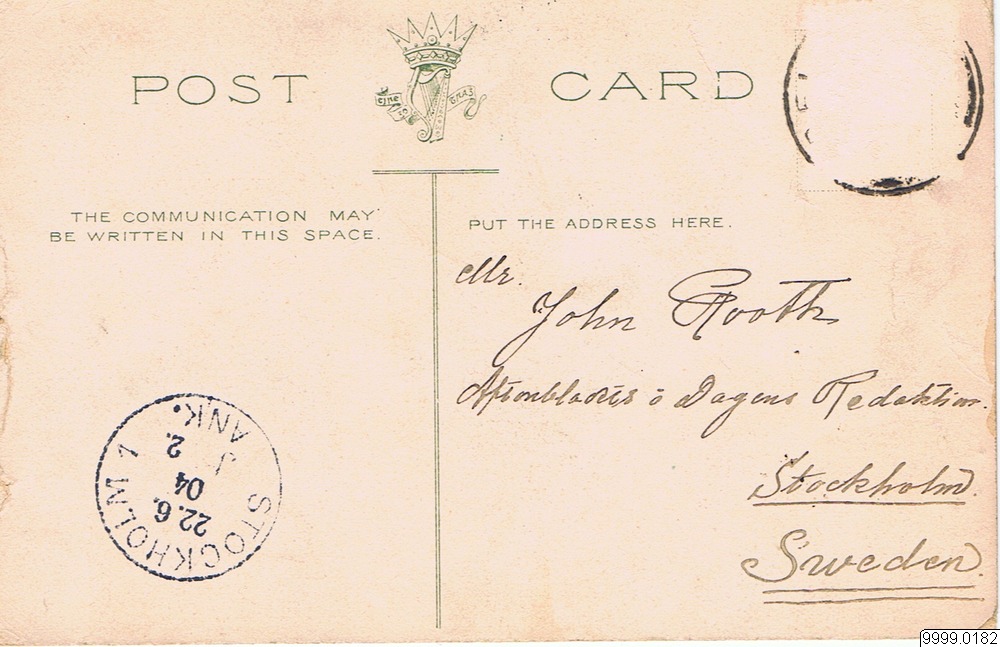 POST CARD
Eire
THE COMMUNICATION MAY
BE WRITTEN IN THIS SPACE.
PUT THE ADDRESS HERE.
Mr.
John Rooth
Aftonbladets o Dagens Redaktion.
Stockholm.
Sweden.
STOCKHOLM 1
ANK.
22.6.
04
2.
9999.0182